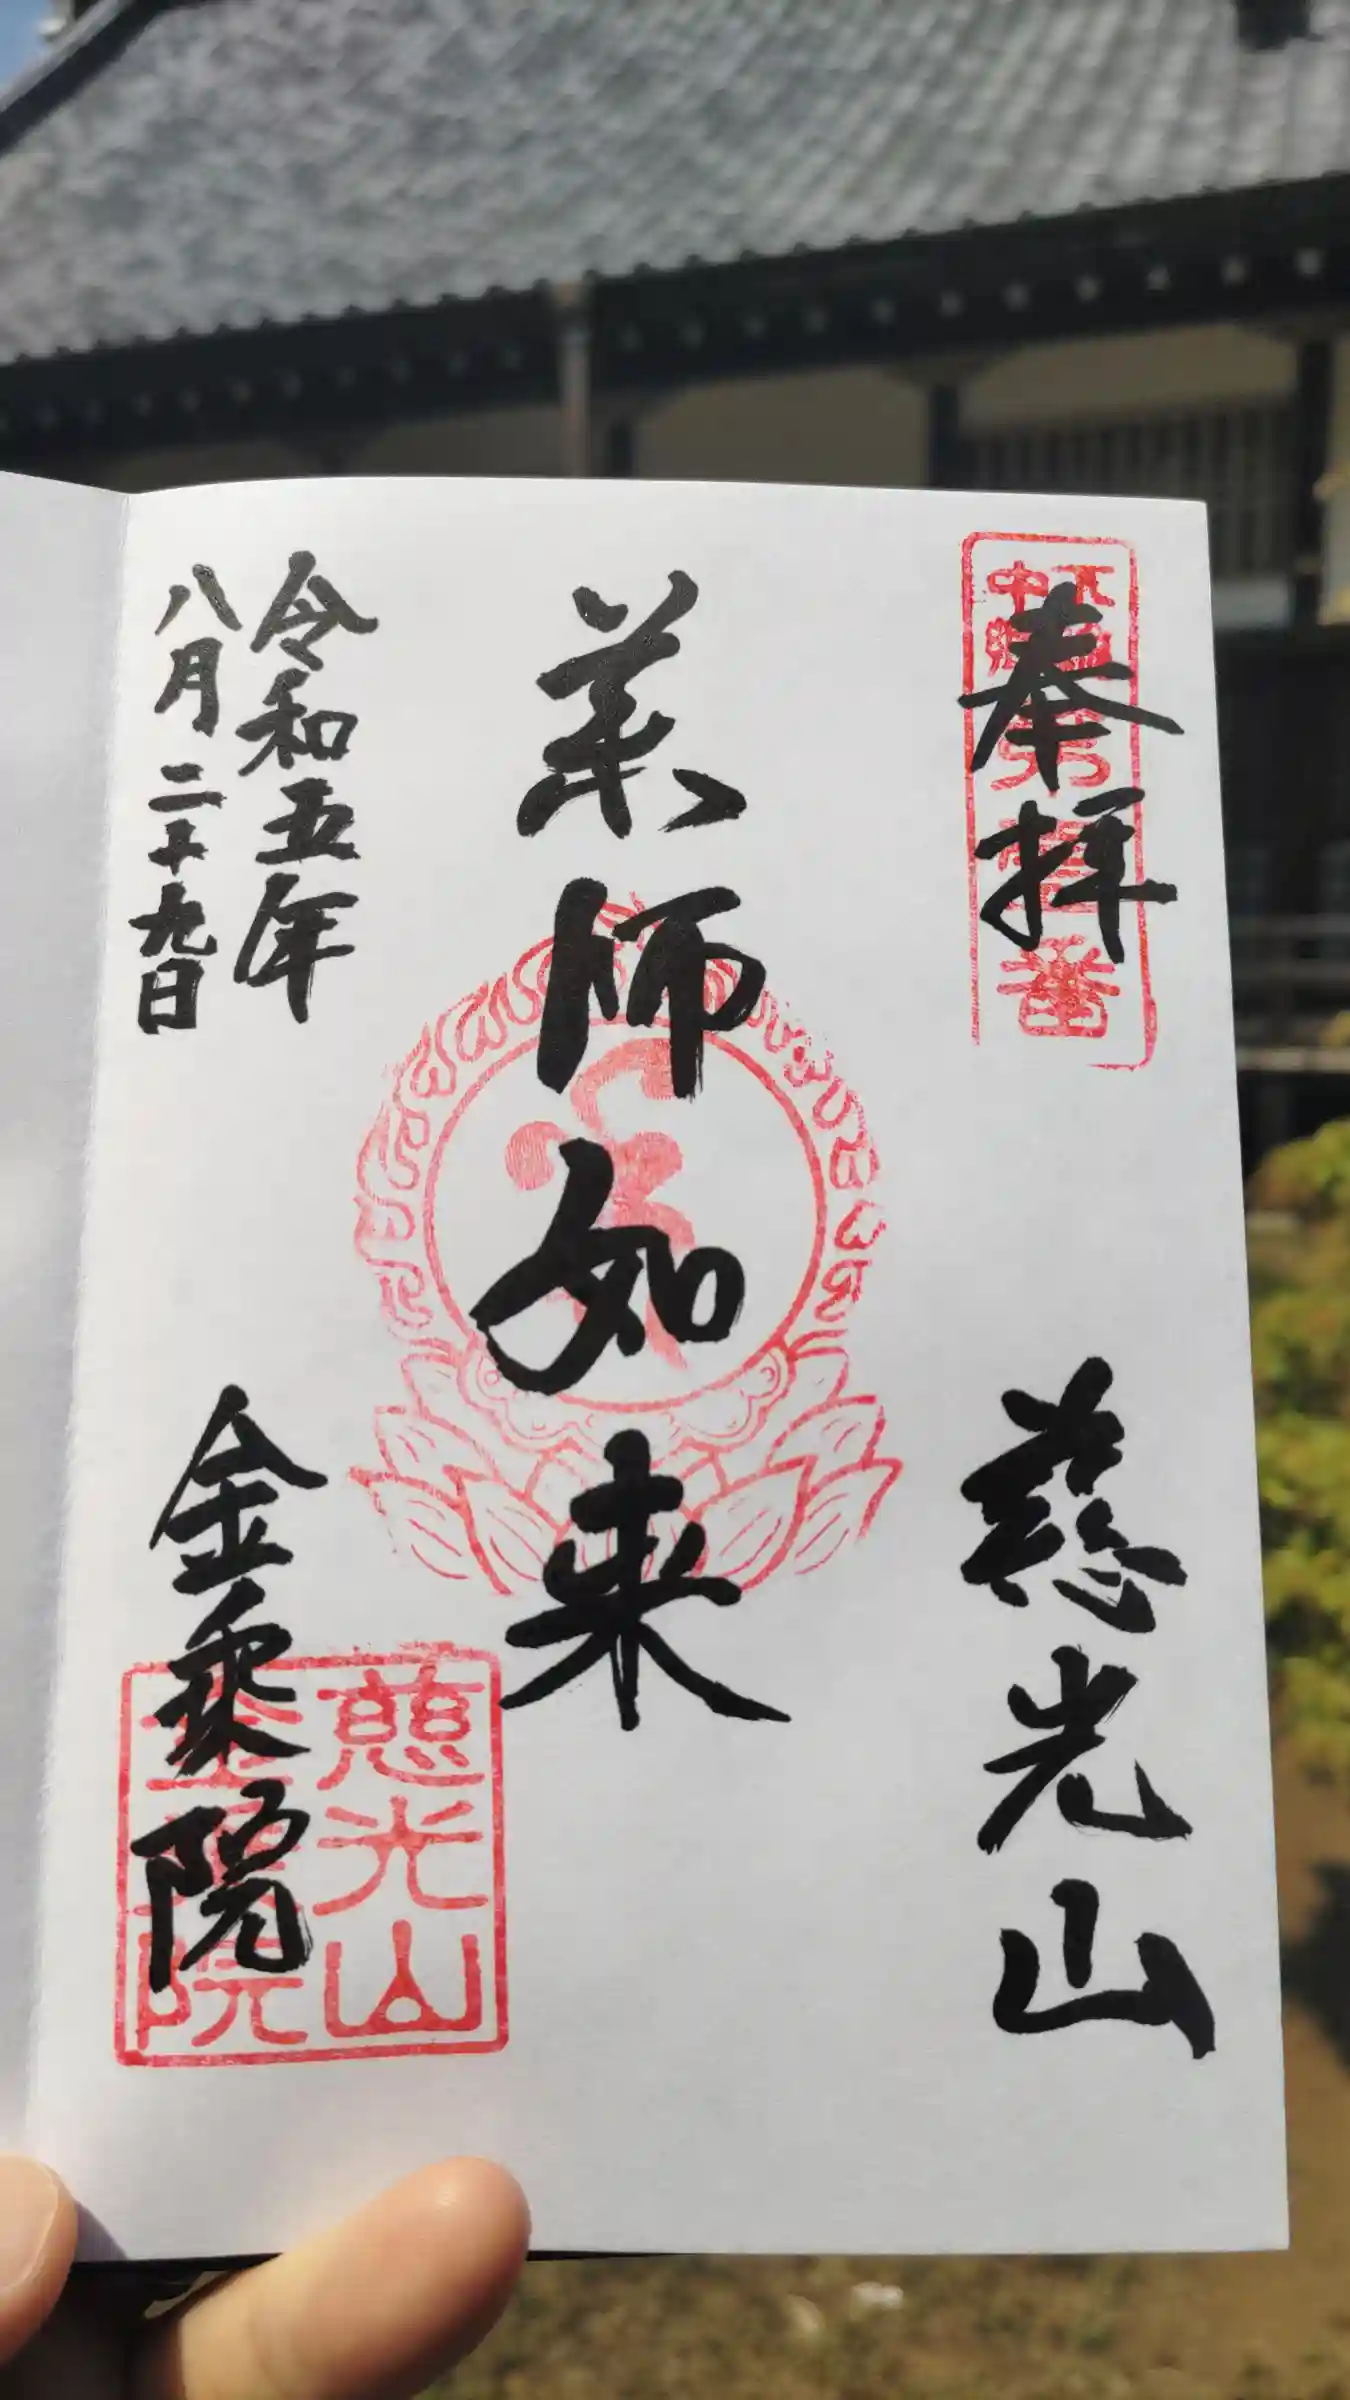 奉拝
慈光山
薬師如来
令和五年
八月二十九日
金乗院
慈光山